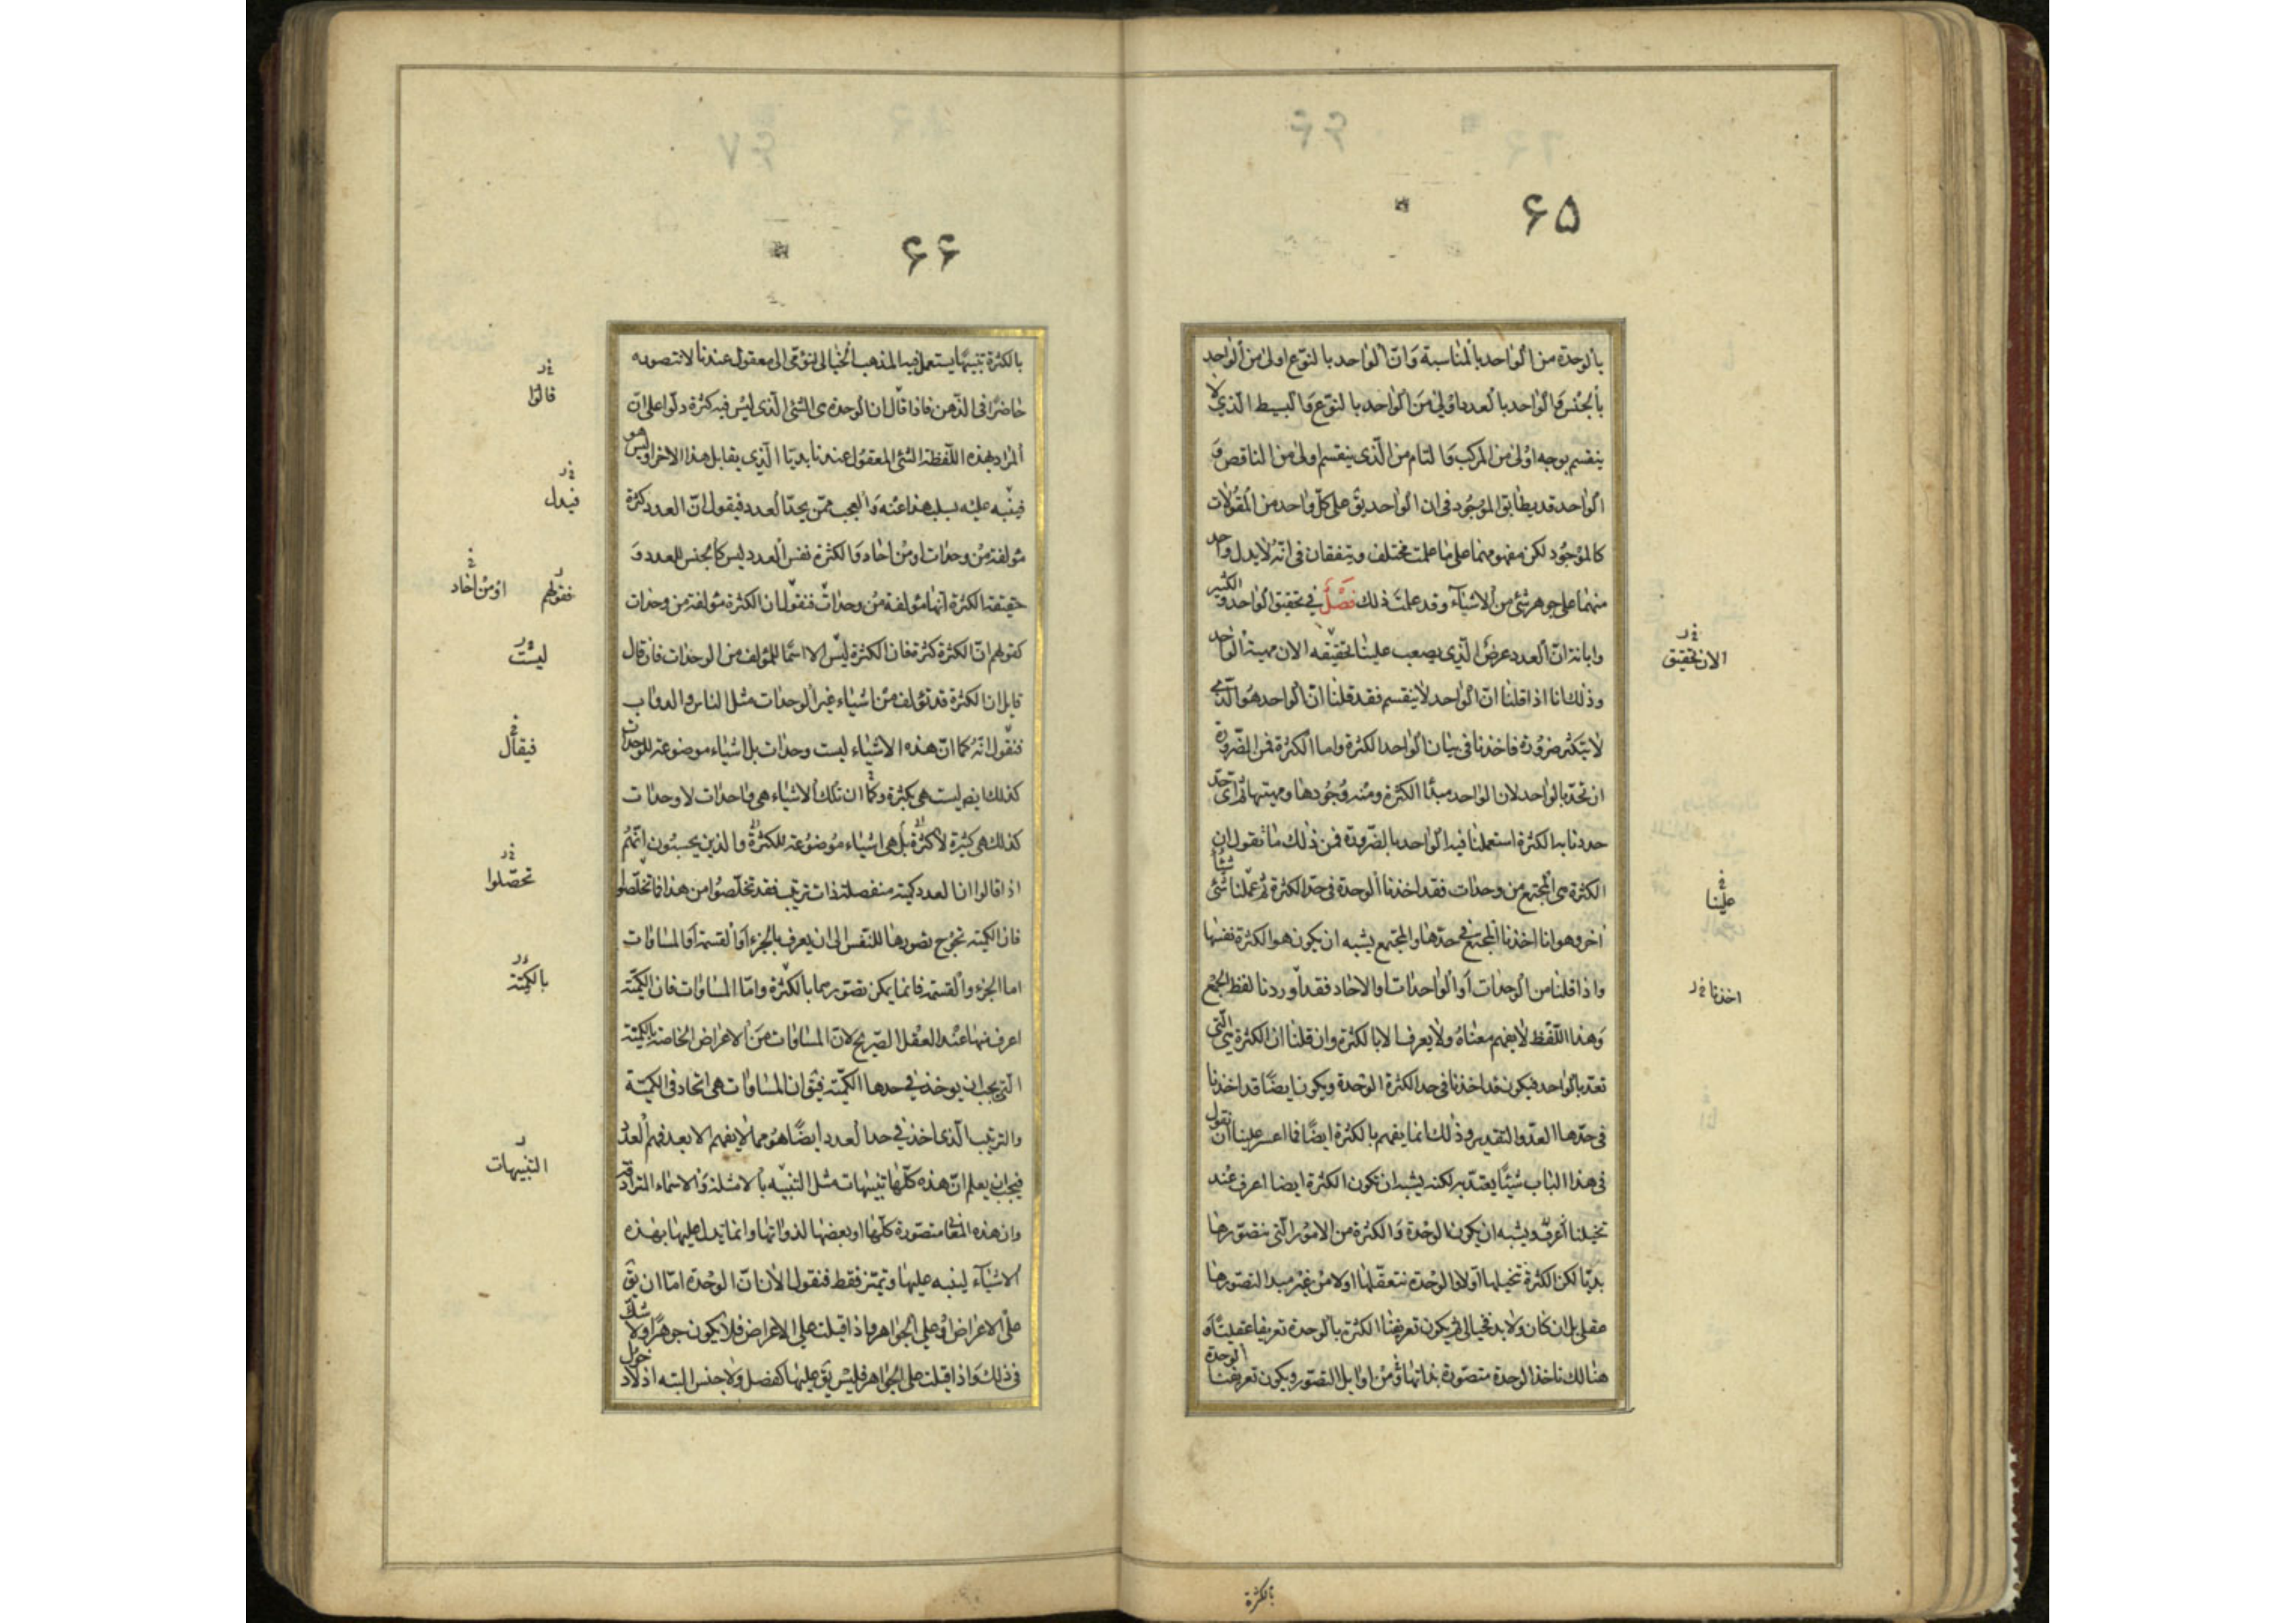 ۶۵
بالوحدة من الواحد بالمناسبة وَانّ الواحد بالنوّع اولىٰ من الواحد
بالجنس وَالواحد بالعدد اولىٰ مَن الواحد بالنوّع وَالبسيط الّذى لا
ينقسم بوجه اولىٰ من المركب وَالتام من الّذى ينقسم اولىٰ من الناقص وَ
الواحد قد يطابق الموجُود فى ان الواحد يقٓ على كلّ واحد من المقُولات
كالموْجُود لكن مفهومهما على ما علمت مختلف ويتفقان فى انّه لا يدل واحد
منهما على جوهر شئ من الاشيآء وقد علمتَ ذلك فصْلٌ فى تحقيق الواحد والكثير
وابانة انّ العدد عرضٌ الّذى يصعب علينا تحقيقه الان مهية الواحد
وذلك انا اذا قلنا انّ الواحد لا ينقسم فقد قلنا انّ الواحد هو الّذى
لا يتكثر ضرورة فاخذنا فى بيان الواحد الكثرة واما الكثرة فمن الضّرورة
ان تحدّ بالواحد لان الواحد مبدأ الكثرة ومنه وُجُودها ومهيتها ثم اىّ حدّ
حددنا به الكثرة استعملنا فيه الواحد بالضّرورة فمن ذلك ما نقول ان
الكثرة هى المجتمع من وحدات فقد اخذنا الوحدة فى حدّ الكثرة ثم عملنا شيئاً
اخر وهو انا اخذنا المجتمع فى حدّها والمجتمع يشبه ان يكون هو الكثرة نفسها
واذا قلنا من الوحدات أو الواحدات او الاحاد فقد اوردنا لفظ الجمع
وَهذا اللّفظ لا يفهم معناهُ ولا يعرف الا بالكثرة وان قلنا ان الكثرة هى التى
تعدّ بالواحد فيكون قد اخذنا فى حد الكثرة الوحدة ويكون ايضًا قد اخذنا
فى حدّها العدّ والتقدير وذلك انما يفهم بالكثرة ايضًا فما اعسر علينا ان نقول
فى هذا الباب شيئًا يعتدّ به لكنه يشبه ان تكون الكثرة ايضا اعرف عند
تخيلنا ويشبه ان يكون الوحْدة وَالكثرة من الامور الّتى نتصوّرها
بديّا لكن الكثرة نتخيلها اولا والوحْدة نتعقّلها اولا من غير مبدا لتصورها
عقلى بل ان كان ولابد فخيالى ثم يكون تعريفنا الكثرة بالوحدة تعريفا عقليّا وَ
هنالك ناخذ الوحدة متصوّرة بذاتها وَمن اوايل التصور ويكون تعريفنا الوحدة
الان تحقيق
علينا
اخذنا
بالكثرة
۶۶
بالكثرة تنبيهًا يستعمل فيه المذهب الخيالى لنؤمى الى معقول عندنا لا نتصوره
حاضرًا فى الذّهن فاذا قال ان الوحدة هى الشئ الّذى ليْس فيه كثرة دلّوا على انّ
المراد بهذه اللّفظة الشئ المعقول عندنا بديّا الّذى يقابل هذا الاخر او ليس هو
فينبّه عليْه بسلب هذا عنْه وَالعجب ممّن يحدّ العدد فيقول انّ العدد كثرة
مؤلفة من وحدات او من احاد وَالكثرة نفس العدد ليس كالجنس للعدد وَ
حقيقة الكثرة انها مؤلفة من وحدات فنقول ان الكثرة مؤلفة من وحدات
كقولهم انّ الكثرة كثرة فان الكثرة ليْس الا اسمًا للمؤلف من الوحدات فان قال
قايل ان الكثرة قد تؤلف من اشياء غير الوحدات مثل الناس والدواب
فنقول انّهُ كما انّ هذه الاشياء ليست وحدات بل اشياء موضوعة للوحدات
كذلك ايضا ليست هى بكثرة وكما ان تلك الاشياء هى واحدات لا وحدات
كذلك هى كثيرة لا كثرة بل هى اشياء موضوعة للكثرة والذين يحسبون انّهُم
اذا قالوا ان العدد كميّة منفصلة ذات ترتيب فقد تخلّصوا من هذا فما تخلّصوا
فان الكميّة تحوج تصورها للنفس الى ان يعرف بالجزء اوالقسمة اوالمساوات
اما الجزء والقسمة فانما يمكن تصورهما بالكثرة وامّا المساوات فان الكميّة
اعرف منها عنْد العقل الصّريح لانّ المساوات من الاعراض الخاصة بالكميّة
الّتى يجب ان يوخذ فى حدها الكميّة فيقٓ ان المساوات هى اتحاد فى الكميّة
والترتيب الّذى اخذ فى حد العدد ايضًا هو مما لا يفهم الا بعد فهم العدد
فيجب ان يعلم انّ هذه كلّها تنبيهات مثل التنبيه بالامثلة وَالاسماء المترادفة
وان هذه المعٰا متصورة كلّها او بعضها لذواتها وانما يدل عليها بهذه
الاشياء لينبه عليها وتميّز فقط فنقول الان انّ الوحْدة امّا ان يقٓ
على الاعراض او على الجواهر فاذا قيلت على الاعراض فلا يكون جوهرًا ولا شك
فى ذلك وَاذا قيلت على الجواهر فليس يقٓ عليها كفصل ولا جنس البته اذ لا دخول
قالوا
فيدل
فقولهم
او من احاد
ليست
فيقال
تحصّلوا
بالكميّة
التنبيهات